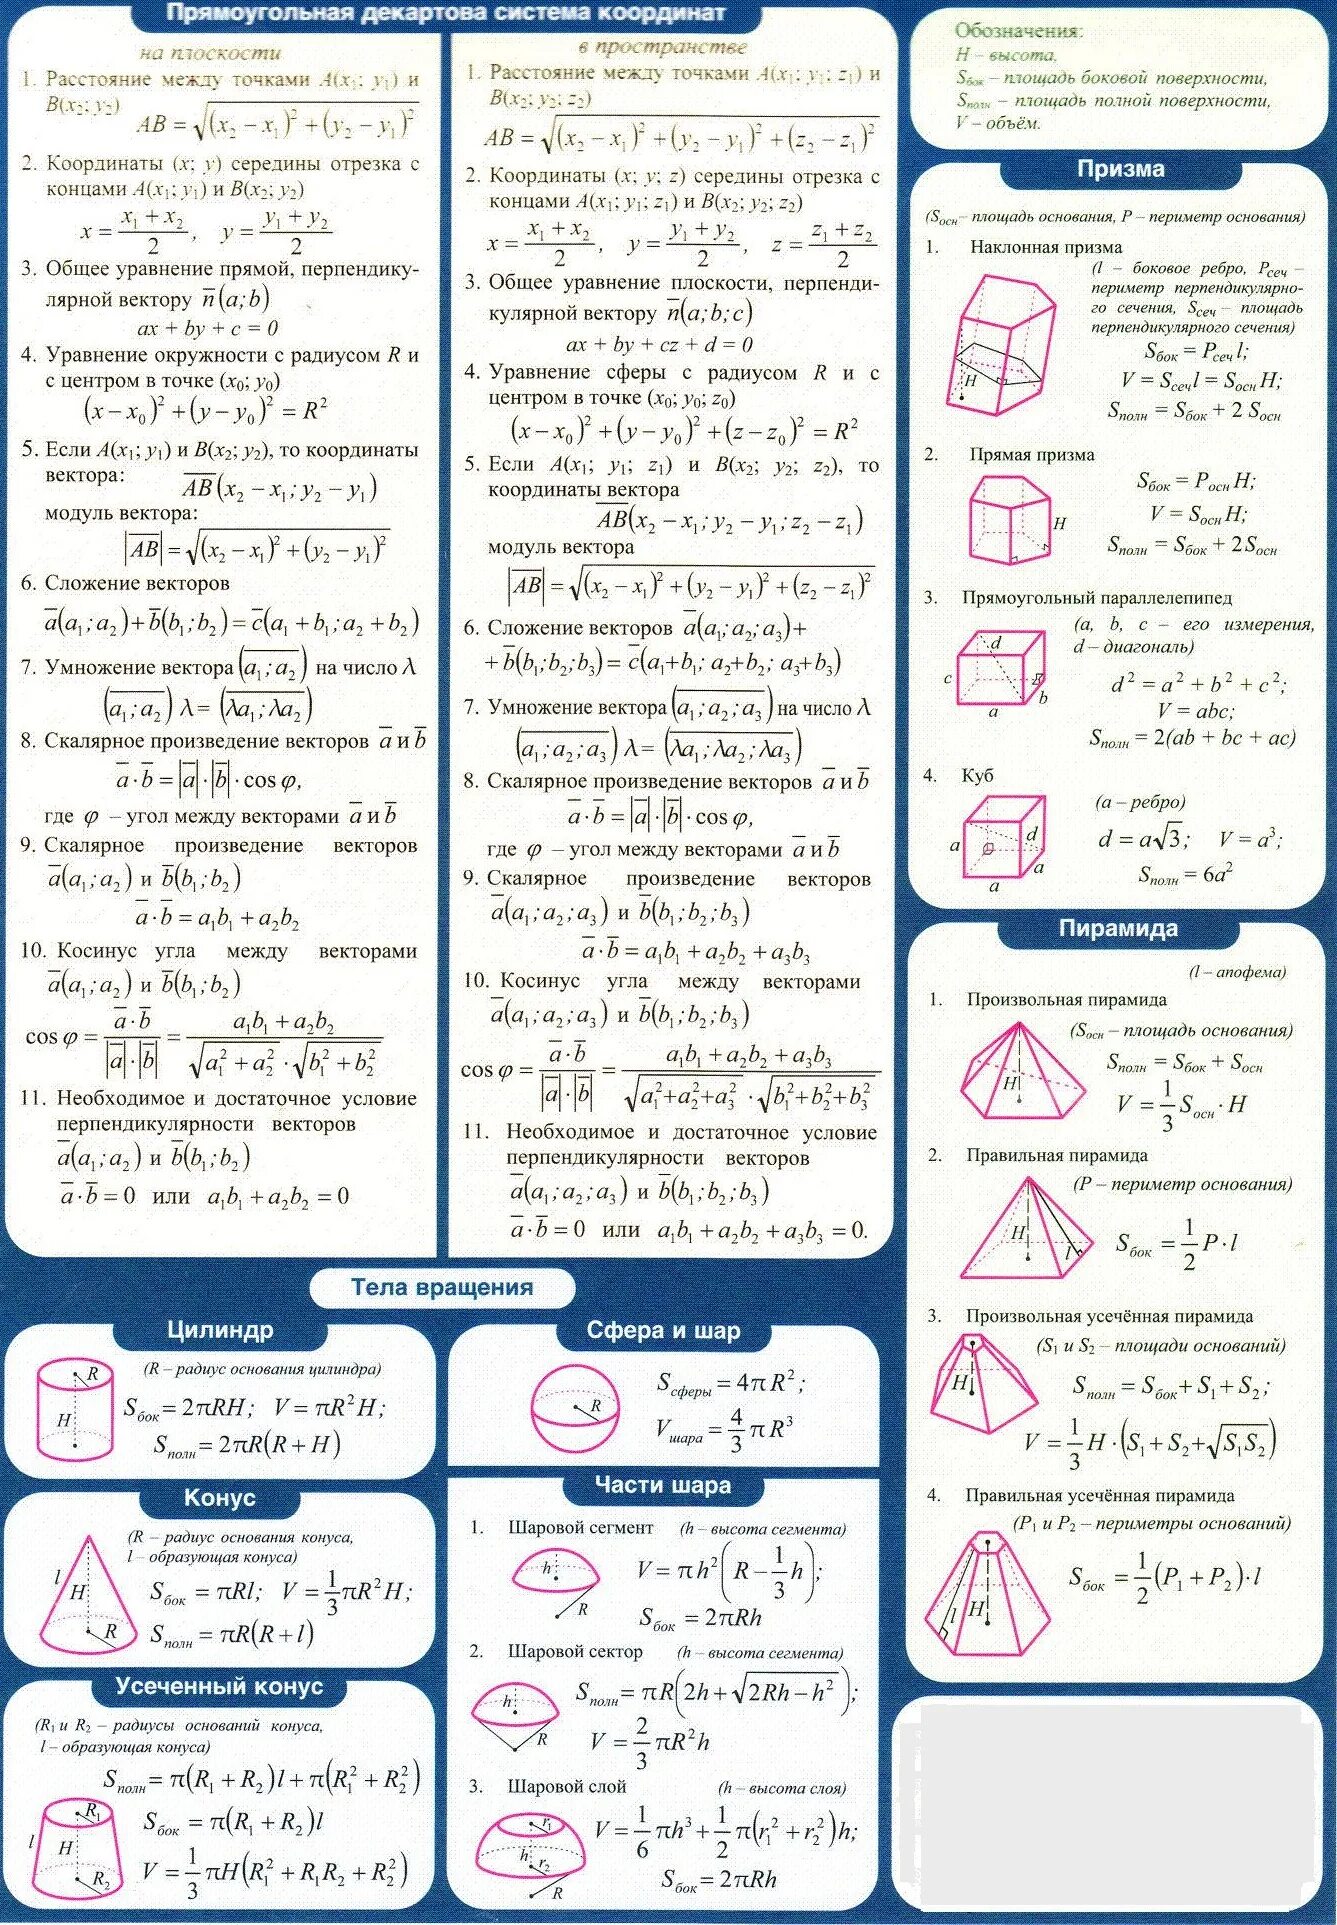 Прямоугольная декартова система координат
на плоскости
1. Расстояние между точками A(x₁; y₁) и
B(x₂; y₂)
AB = √((x₂ – x₁)² + (y₂ – y₁)²)
2. Координаты (x; y) середины отрезка с
концами A(x₁; y₁) и B(x₂; y₂)
x = (x₁ + x₂)/2, y = (y₁ + y₂)/2
3. Общее уравнение прямой, перпендику-
лярной вектору n̅(a; b)
ax + by + c = 0
4. Уравнение окружности с радиусом R и
с центром в точке (x₀; y₀)
(x – x₀)² + (y – y₀)² = R²
5. Если A(x₁; y₁) и B(x₂; y₂), то координаты
вектора: A̅B̅(x₂ – x₁; y₂ – y₁)
модуль вектора:
|A̅B̅| = √((x₂ – x₁)² + (y₂ – y₁)²)
6. Сложение векторов
a̅(a₁; a₂) + b̅(b₁; b₂) = c̅(a₁ + b₁; a₂ + b₂)
7. Умножение вектора (a₁; a₂) на число λ
(a₁; a₂) λ = (λa₁; λa₂)
8. Скалярное произведение векторов a̅ и b̅
a̅ · b̅ = |a̅| · |b̅| · cos φ,
где φ – угол между векторами a̅ и b̅
9. Скалярное произведение векторов
a̅(a₁; a₂) и b̅(b₁; b₂)
a̅ · b̅ = a₁b₁ + a₂b₂
10. Косинус угла между векторами
a̅(a₁; a₂) и b̅(b₁; b₂)
cos φ = (a̅ · b̅)/(|a̅| · |b̅|) = (a₁b₁ + a₂b₂)/(√(a₁² + a₂²) · √(b₁² + b₂²))
11. Необходимое и достаточное условие
перпендикулярности векторов
a̅(a₁; a₂) и b̅(b₁; b₂)
a̅ · b̅ = 0 или a₁b₁ + a₂b₂ = 0
в пространстве
1. Расстояние между точками A(x₁; y₁; z₁) и
B(x₂; y₂; z₂)
AB = √((x₂ – x₁)² + (y₂ – y₁)² + (z₂ – z₁)²)
2. Координаты (x; y; z) середины отрезка с
концами A(x₁; y₁; z₁) и B(x₂; y₂; z₂)
x = (x₁ + x₂)/2, y = (y₁ + y₂)/2, z = (z₁ + z₂)/2
3. Общее уравнение плоскости, перпенди-
кулярной вектору n̅(a; b; c)
ax + by + cz + d = 0
4. Уравнение сферы с радиусом R и с
центром в точке (x₀; y₀; z₀)
(x – x₀)² + (y – y₀)² + (z – z₀)² = R²
5. Если A(x₁; y₁; z₁) и B(x₂; y₂; z₂), то
координаты вектора
A̅B̅(x₂ – x₁; y₂ – y₁; z₂ – z₁)
модуль вектора
|A̅B̅| = √((x₂ – x₁)² + (y₂ – y₁)² + (z₂ – z₁)²)
6. Сложение векторов a̅(a₁; a₂; a₃) +
+ b̅(b₁; b₂; b₃) = c̅(a₁+b₁; a₂+b₂; a₃+b₃)
7. Умножение вектора (a₁; a₂; a₃) на число λ
(a₁; a₂; a₃) λ = (λa₁; λa₂; λa₃)
8. Скалярное произведение векторов a̅ и b̅
a̅ · b̅ = |a̅| · |b̅| · cos φ,
где φ – угол между векторами a̅ и b̅
9. Скалярное произведение векторов
a̅(a₁; a₂; a₃) и b̅(b₁; b₂; b₃)
a̅ · b̅ = a₁b₁ + a₂b₂ + a₃b₃
10. Косинус угла между векторами
a̅(a₁; a₂; a₃) и b̅(b₁; b₂; b₃)
cos φ = (a̅ · b̅)/(|a̅| · |b̅|) = (a₁b₁ + a₂b₂ + a₃b₃)/(√(a₁²+a₂²+a₃²) · √(b₁²+b₂²+b₃²))
11. Необходимое и достаточное условие
перпендикулярности векторов
a̅(a₁; a₂; a₃) и b̅(b₁; b₂; b₃)
a̅ · b̅ = 0 или a₁b₁ + a₂b₂ + a₃b₃ = 0.
Обозначения:
H – высота.
Sбок – площадь боковой поверхности,
Sполн – площадь полной поверхности,
V – объём.
Призма
(Sосн – площадь основания, P – периметр основания)
1. Наклонная призма
(l – боковое ребро, Pсеч –
периметр перпендикулярно-
го сечения, Sсеч – площадь
перпендикулярного сечения)
Sбок = Pсеч l;
V = Sсеч l = Sосн H;
Sполн = Sбок + 2 Sосн
H
2. Прямая призма
Sбок = Pосн H;
V = Sосн H;
Sполн = Sбок + 2Sосн
H
3. Прямоугольный параллелепипед
(a, b, c – его измерения,
d – диагональ)
d² = a² + b² + c²;
V = abc;
Sполн = 2(ab + bc + ac)
d
c
b
a
4. Куб
(a – ребро)
d = a√3; V = a³;
Sполн = 6a²
d
a
a
a
Пирамида
(l – апофема)
1. Произвольная пирамида
(Sосн – площадь основания)
Sполн = Sбок + Sосн
V = 1/3 Sосн · H
H
2. Правильная пирамида
(P – периметр основания)
Sбок = 1/2 P · l
H
l
3. Произвольная усечённая пирамида
(S₁ и S₂ – площади оснований)
Sполн = Sбок + S₁ + S₂;
V = 1/3 H · (S₁ + S₂ + √(S₁S₂))
H
4. Правильная усечённая пирамида
(P₁ и P₂ – периметры оснований)
Sбок = 1/2 (P₁ + P₂) · l
l
H
Тела вращения
Цилиндр
(R – радиус основания цилиндра)
Sбок = 2πRH; V = πR²H;
Sполн = 2πR(R + H)
R
H
Конус
(R – радиус основания конуса,
l – образующая конуса)
Sбок = πRl; V = 1/3 πR²H;
Sполн = πR(R + l)
l
H
R
Усеченный конус
(R₁ и R₂ – радиусы оснований конуса,
l – образующая конуса)
Sполн = π(R₁ + R₂)l + π(R₁² + R₂²)
Sбок = π(R₁ + R₂)l
V = 1/3 πH(R₁² + R₁R₂ + R₂²)
R₁
l
H
R₂
Сфера и шар
Sсферы = 4πR²;
Vшара = 4/3 πR³
R
Части шара
1. Шаровой сегмент (h – высота сегмента)
V = πh²(R – 1/3 h);
Sбок = 2πRh
h
R
2. Шаровой сектор (h – высота сегмента)
Sполн = πR(2h + √(2Rh – h²));
V = 2/3 πR²h
h
R
3. Шаровой слой (h – высота слоя)
V = 1/6 πh³ + 1/2 π(r₁² + r₂²)h;
Sбок = 2πRh
r₁
h
r₂
R